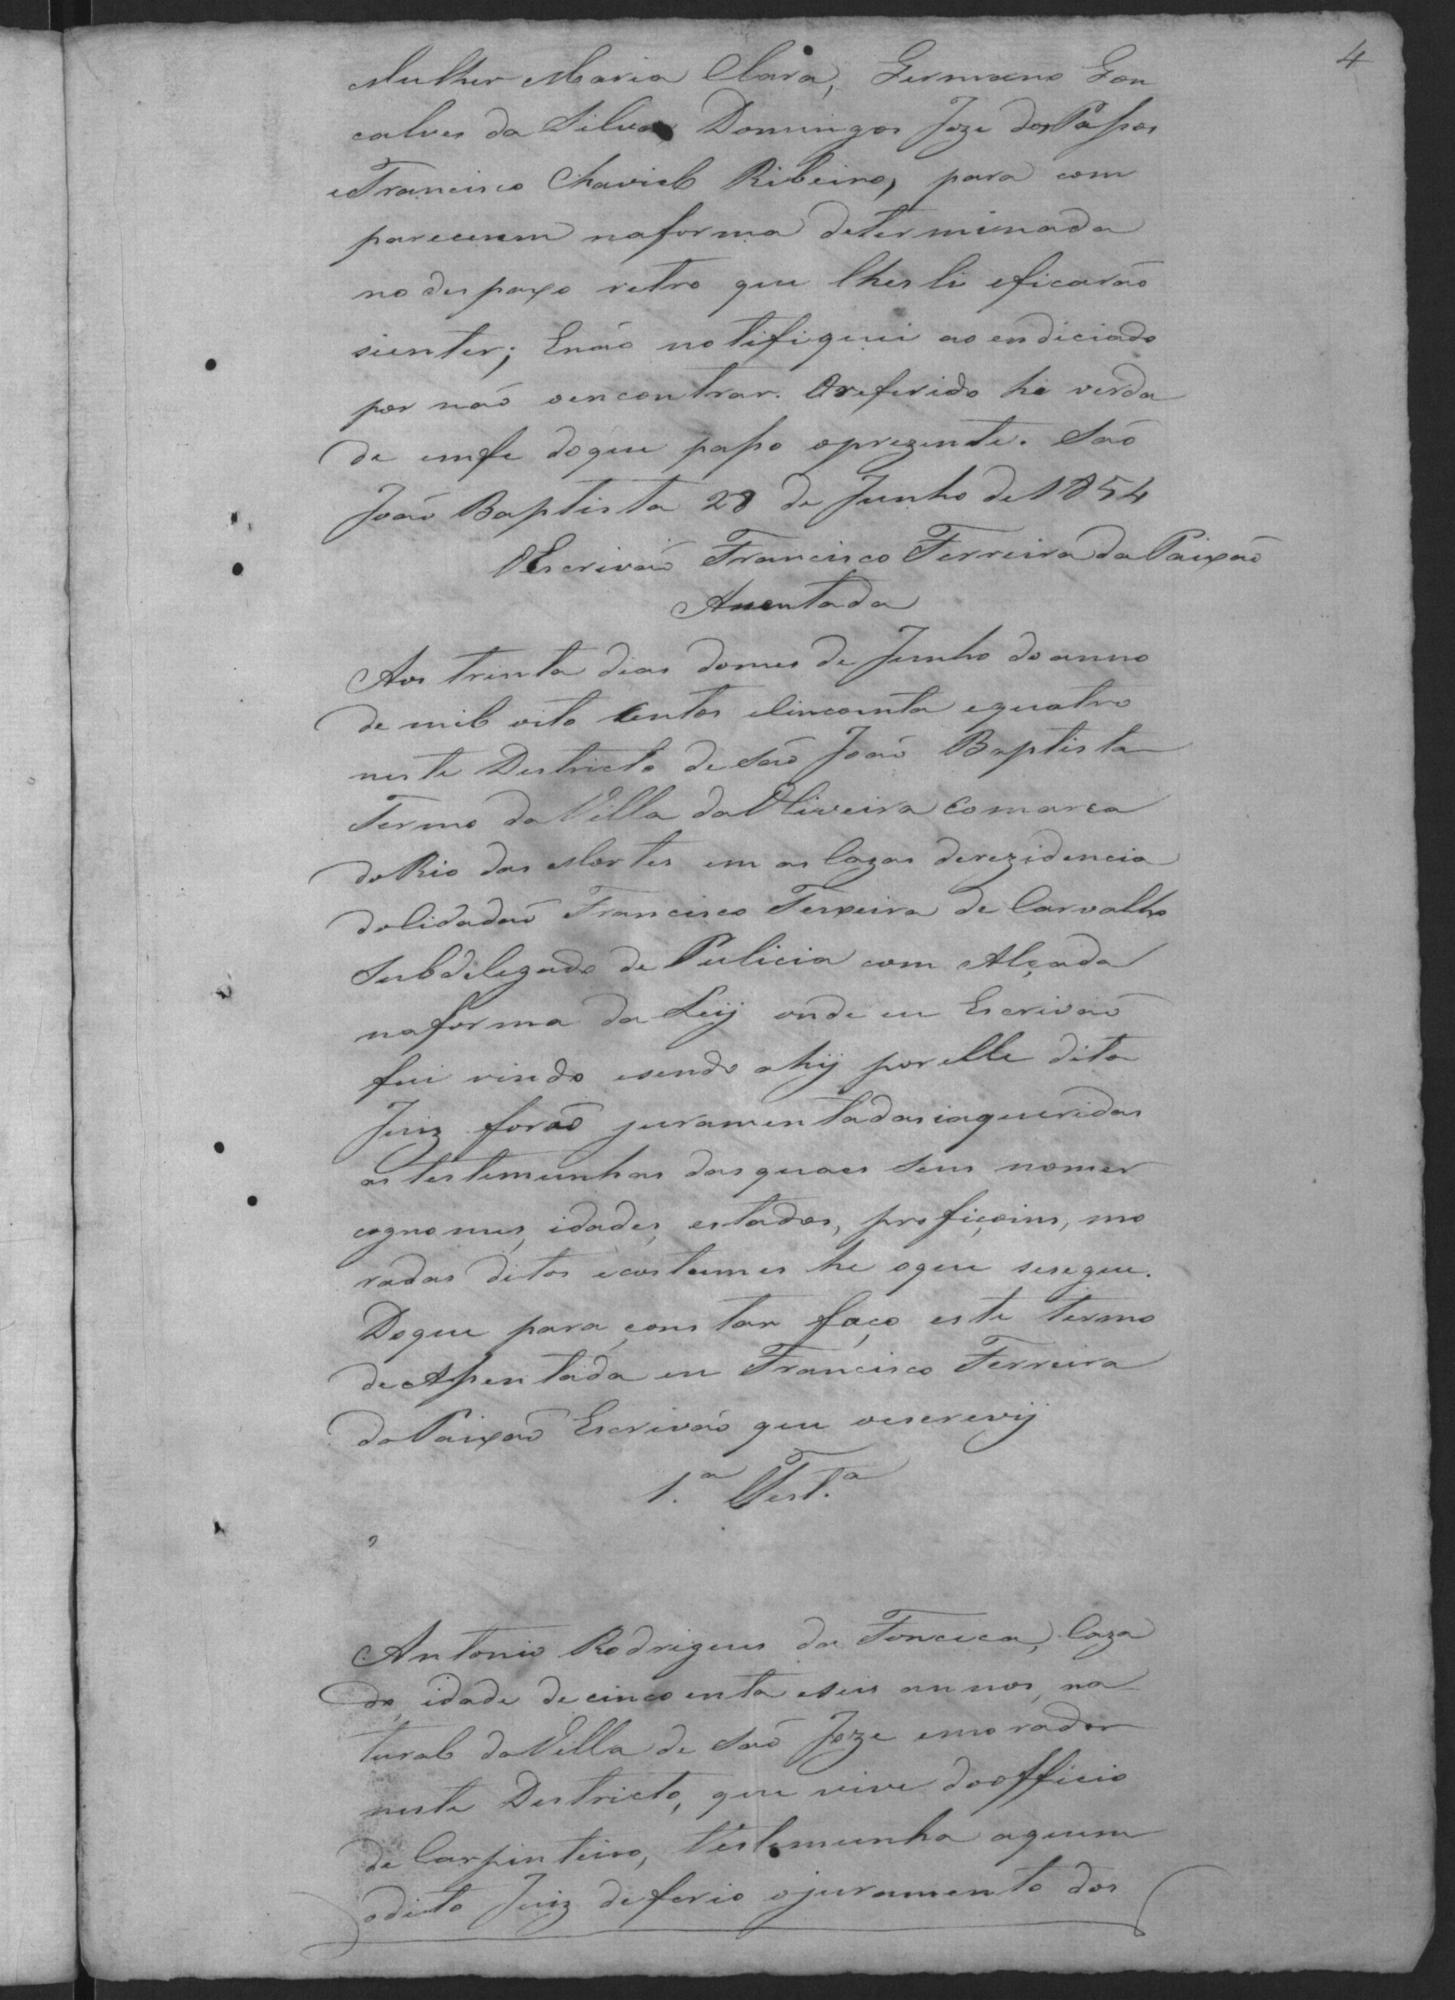 4
Mulher Maria Clara, Germano Gon
calves da Silva Domingos Joze dos Passos
e Francisco Chaviel Ribeiro, para com
parecerem naforma determinada
no despaxo retro que lhes li eficarão
sientes; Enão notifiquei ao endiciado
por não oencontrar. Oreferido he verda
de emfe doque passo oprezente. São
João Baptista 28 de Junho de 1854
OEscrivão Francisco Ferreira da Paixão
Asentada
Aos trinta dias domes de Junho do anno
de mil oito Centos eCincoenta equatro
neste Destricto de São João Baptista
Termo da Villa da Oliveira Comarca
do Rio das Mortes em as Cazas derezidencia
do Cidadão Francisco Teixeira de Carvalho
Subdelegado de Pulicia com Alçada
naforma da Leij onde eu Escrivão
fui vindo esendo ahij por elle dito
Juiz forão juramentadas inqueridas
as testemunhas das quaes seus nomes
cognomes, idades, estados, profiçoins, mo
radas ditos ecostumes he oque sesegue.
Doque para constar faço este termo
de Assentada eu Francisco Ferreira
da Paixão Escrivão que oescrevij
1.ª Test.ª
Antonio Rodrigues da Fonceca, Caza
do, idade de cincoenta eseis annos, na
tural da Villa de São Joze emorador
neste Destricto, que vive do officio
de Carpinteiro, testemunha aquem
odito Juiz deferio ojuramento dos